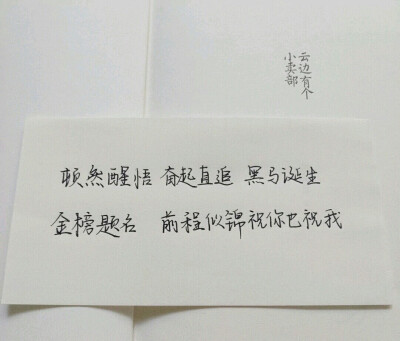 云边有个
小卖部
顿然醒悟 奋起直追 黑马诞生
金榜题名 前程似锦祝你巴祝我